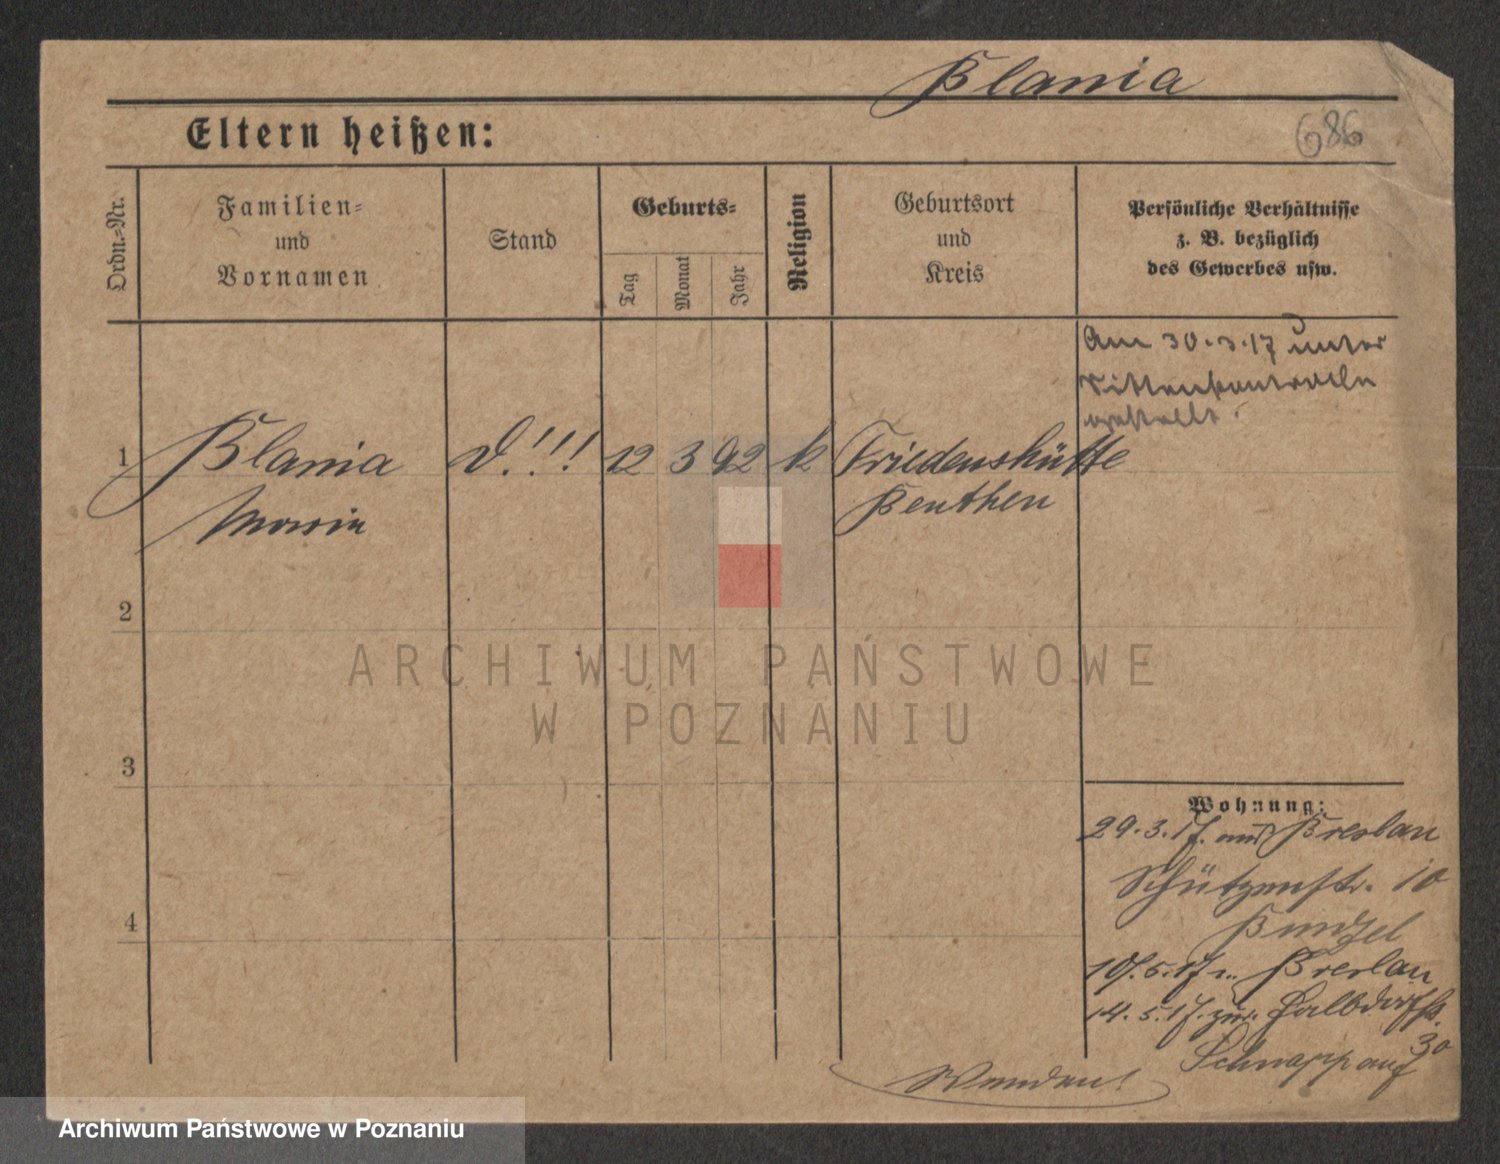 Blania
Eltern heißen:
686
Ordn.-Nr.
Familien-
und
Vornamen
Stand
Geburts-
Tag
Monat
Jahr
Religion
Geburtsort
und
Kreis
Persönliche Verhältnisse
z. B. bezüglich
des Gewerbes usw.
Am 30.3.17 unter
Sittenkontrolle
gestellt.
1 Blania d.!!! 12 3 92 k Friedenshütte
Maria Beuthen
2
ARCHIWUM PAŃSTWOWE
W POZNANIU
3
Wohnung:
29.3.17. aus Breslau
Schützenstr. 10
4
10.5.17 n. Breslau
14.5.17. zur.
30
Schnappauf
Wenden!
Archiwum Państwowe w Poznaniu